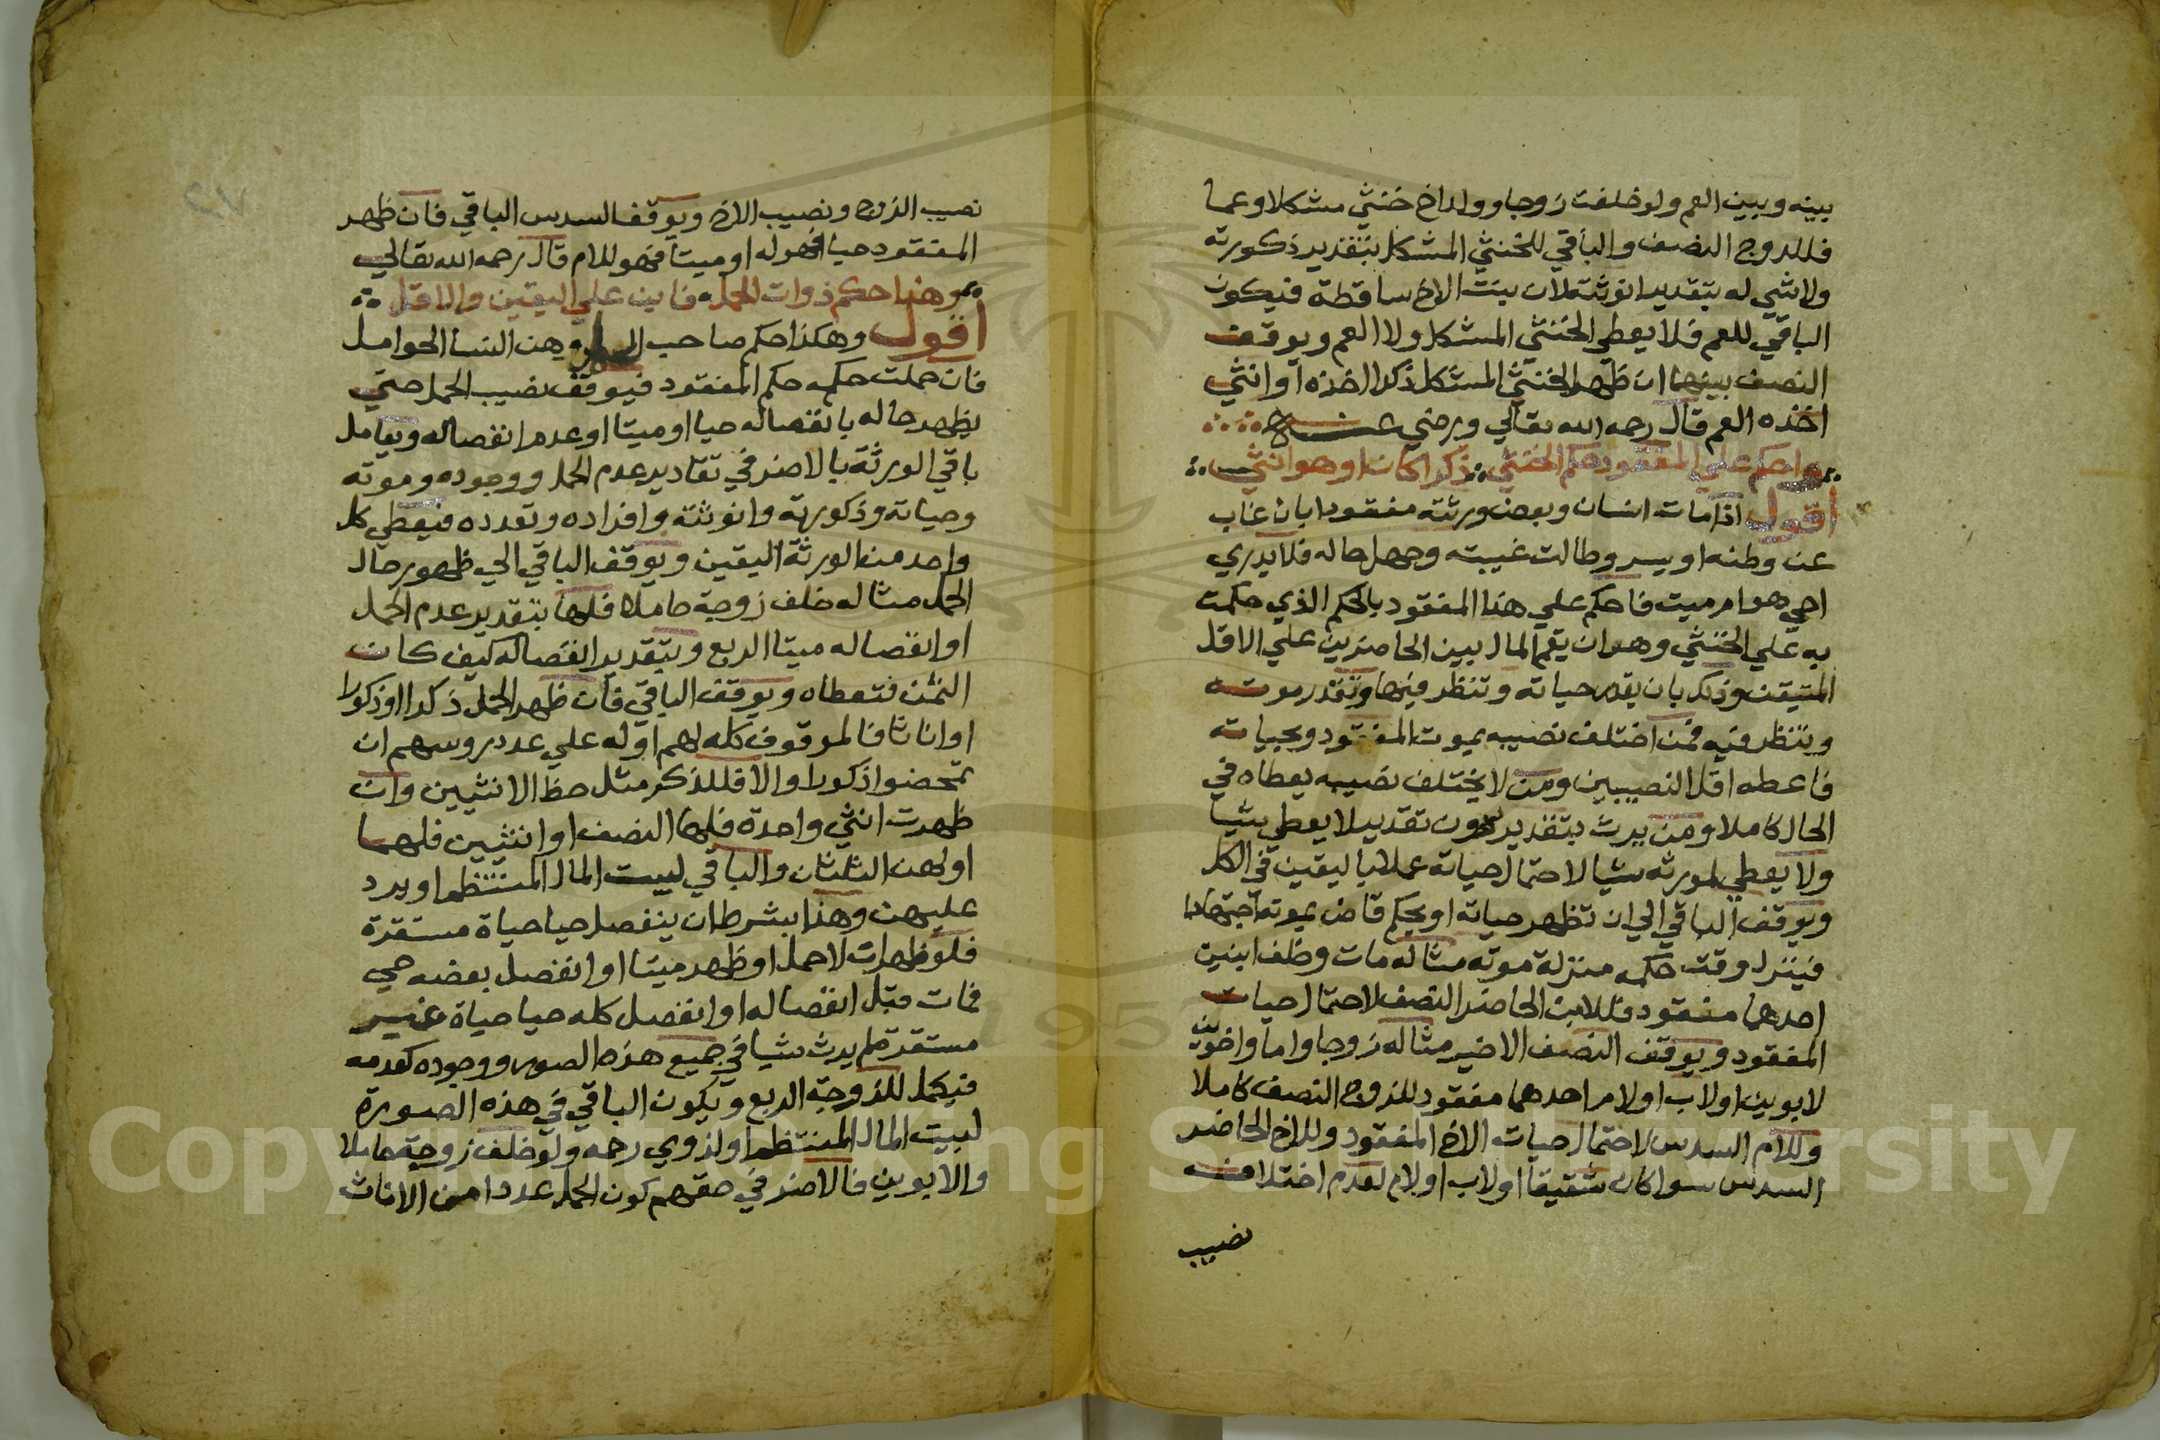 بينه وبين العم ولو خلفت زوجا وولداخ خنثي مشكلا وعما
فللزوج النصف والباقي للخنثي المشكل بتقدير ذكورته
ولاشي له بتقدير انوثته لان بنت الاخ ساقطة فيكون
الباقي للعم فلا يعطي الخنثي المشكل ولا العم ويوقف
النصف بينهما ان ظهر الخنثي المشكل ذكرا اخذه او انثي
اخذه العم قال رحمه الله تعالي ورضي عنه
واحكم علي المفقود حكم الخنثي ذكرا كان او هو انثي
اقول اذا مات انسان وبعض ورثته مفقود ابان غاب
عن وطنه او يسر وطالت غيبته وجهل حاله فلا يدري
احي هو ام ميت فاحكم علي هذا المفقود بالحكم الذي حكمت
به علي الخنثي وهو ان يقسم المال بين الحاضرين علي الاقل
المتيقن وذلك بان يقدر حياته وتنظر فيها وتقدر موته
وتنظر فيه فمن اختلف نصيبه بموت المفقود وبحياته
فاعطه اقل النصيبين ومن لا يختلف نصيبه يعطاه في
الحال كاملا ومن يرث بتقدير دون تقدير لا يعطي شيا
ولا يعطي لمورثه شيا لاحتمال حياته عملا باليقين في الكل
ويوقف الباقي الي ان تظهر حياته او يحكم قاض بموته اجتهادا
فينزل وقت حكمه منزلة موته مثاله مات وخلف ابنين
احدهما مفقود فللابن الحاضر النصف لاحتمال حيات
المفقود ويوقف النصف الاخير مثاله زوجا واما واخوين
لابوين او لاب او لام احدهما مفقود للزوج النصف كاملا
وللام السدس لاحتمال حيات الاخ المفقود وللاخ الحاضر
السدس سوا كان شقيقا او لاب او لام لعدم اختلاف
نصيب
نصيب الزوج ونصيب الاخ ويوقف السدس الباقي فان ظهر
المفقود حيا فهو له او ميتا فهو للام قال رحمه الله تعالي
وهذا حكم ذوات الحمل فابن علي اليقين والاقل
اقول وهكذا حكم صاحب الحمل وهن النسا الحوامل
فان حملت حكمه حكم المفقود فيوقف نصيب الحمل حتي
يظهر حاله بانفصاله حيا او ميتا او عدم انفصاله ويعامل
باقي الورثة بالاضر في تقادير عدم الحمل ووجوده وموته
وحياته وذكورته وانوثته وافراده وتعدده فيعطي كل
واحد من الورثة اليقين ويوقف الباقي الي ظهور حال
الحمل مثاله خلف زوجة حاملا فلها بتقدير عدم الحمل
او انفصاله ميتا الربع وبتقدير انفصاله كيف كان
الثمن فتعطاه ويوقف الباقي فان ظهر الحمل ذكرا او ذكورا
او اناثا فالموقوف كله لهم او له علي عدد روسهم ان
تمحضوا ذكورا والا فللذكر مثل حظ الانثيين وان
ظهرت انثي واحدة فلها النصف او انثيين فلهما
او لهن الثلثان والباقي لبيت المال المنتظم او يرد
عليهن وهذا بشرط ان ينفصل حيا حياة مستقرة
فلو ظهر ان لا حمل او ظهر ميتا او انفصل بعضه حي
فمات قبل انفصاله او انفصل كله حيا حياة غير
مستقرة لم يرث شيا في جميع هذه الصور ووجوده كعدمه
فيكمل للزوجة الربع ويكون الباقي في هذه الصورة
لبيت المال المنتظم او لذوي رحمه ولو خلف زوجة حاملا
والابوين فالاضر في حقهم كون الحمل عددا من الاناث
Copyright © King Saud University
195